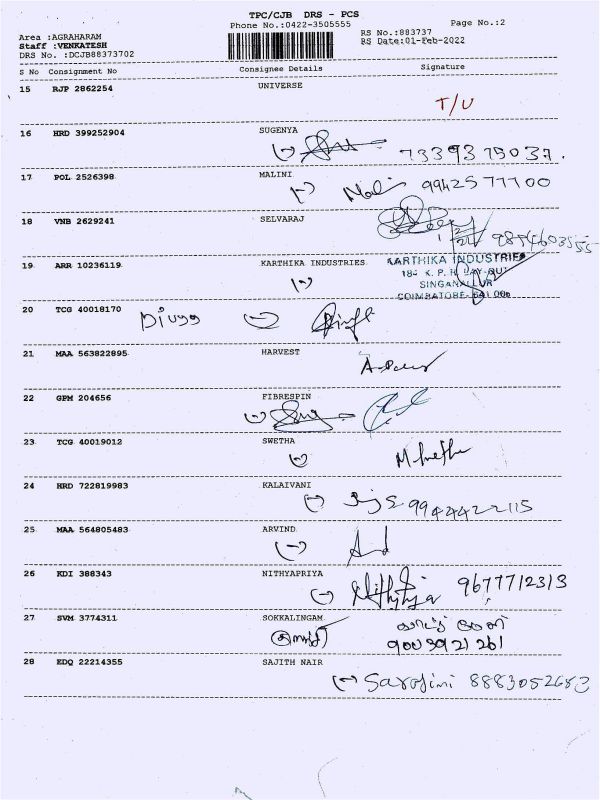 TPC/CJB DRS - PCS
Phone No.:0422-3505555 Page No.:2
Area :AGRAHARAM RS No.:883737
Staff :VENKATESH RS Date:01-Feb-2022
DRS No. :DCJB88373702
S No Consignment No Consignee Details Signature
15 RJP 2862254 UNIVERSE
T/U
16 HRD 399252904 SUGENYA
7339375037.
17 POL 2526398 MALINI
9942577700
18 VNB 2629241 SELVARAJ
19 ARR 10236119 KARTHIKA INDUSTRIES KARTHIKA INDUSTRIES
SINGANALLUR
COIMBATORE-641 005
20 TCG 40018170
Divya
21 MAA 563822895 HARVEST
22 GPM 204656 FIBRESPIN
23 TCG 40019012 SWETHA
24 HRD 722819983 KALAIVANI
9944422115
25 MAA 564805483 ARVIND
26 KDI 388343 NITHYAPRIYA
9677712313
27 SVM 3774311 SOKKALINGAM
28 EDQ 22214355 SAJITH NAIR
Sarojini 8883052682